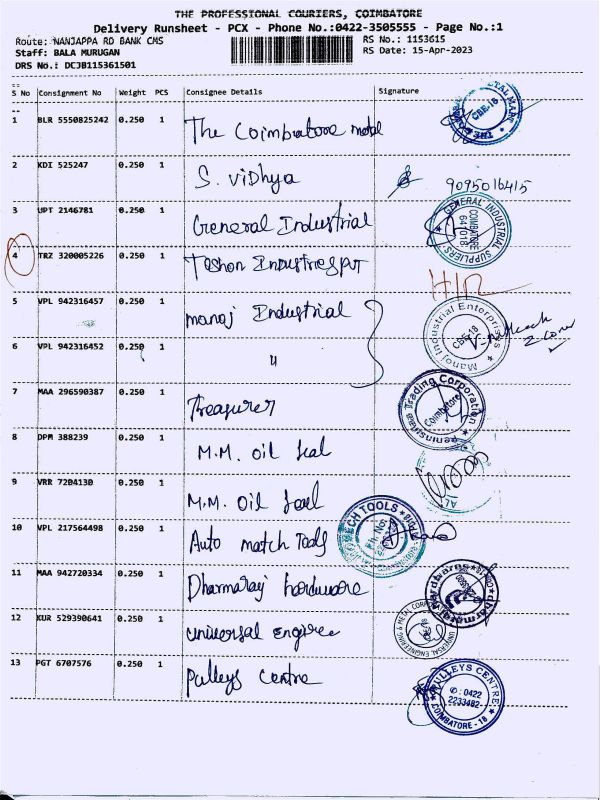 THE PROFESSIONAL COURIERS, COIMBATORE
Delivery Runsheet - PCX - Phone No.:0422-3505555 - Page No.:1
Route: NANJAPPA RD BANK CMS
RS No.: 1153615
Staff: BALA MURUGAN
RS Date: 15-Apr-2023
DRS No.: DCJB115361501
S No Consignment No Weight PCS Consignee Details Signature
1 BLR 5550825242 0.250 1 The Coimbatore metal
CBE-18
2 KDI 525247 0.250 1 S. Vidhya 9095016415
3 UPT 2146781 0.250 1 General Industrial
GENERAL INDUSTRIAL SUPPLIERS COIMBATORE 641018
4 TRZ 320005226 0.250 1 Toshon Industries pvt
5 VPL 942316457 0.250 1 manoj Industrial
Manoj Industrial Enterprises CBE-18
6 VPL 942316452 0.250 1 "
7 MAA 296590387 0.250 1 Treasurer
Peninsula Trading Corporation Coimbatore
8 DPM 388239 0.250 1 M.M. oil Seal
9 VRR 7204130 0.250 1 M.M. oil Seal
10 VPL 217564498 0.250 1 Auto match Tools
TECH TOOLS Ph. No.
11 MAA 942720334 0.250 1 Dharmaraj hardware
12 KUR 529390641 0.250 1 universal enginee
UNIVERSAL ENGINEERING & METAL CORPORATION
13 PGT 6707576 0.250 1 Pulleys centre
PULLEYS CENTRE : 0422 2233482 COIMBATORE - 18